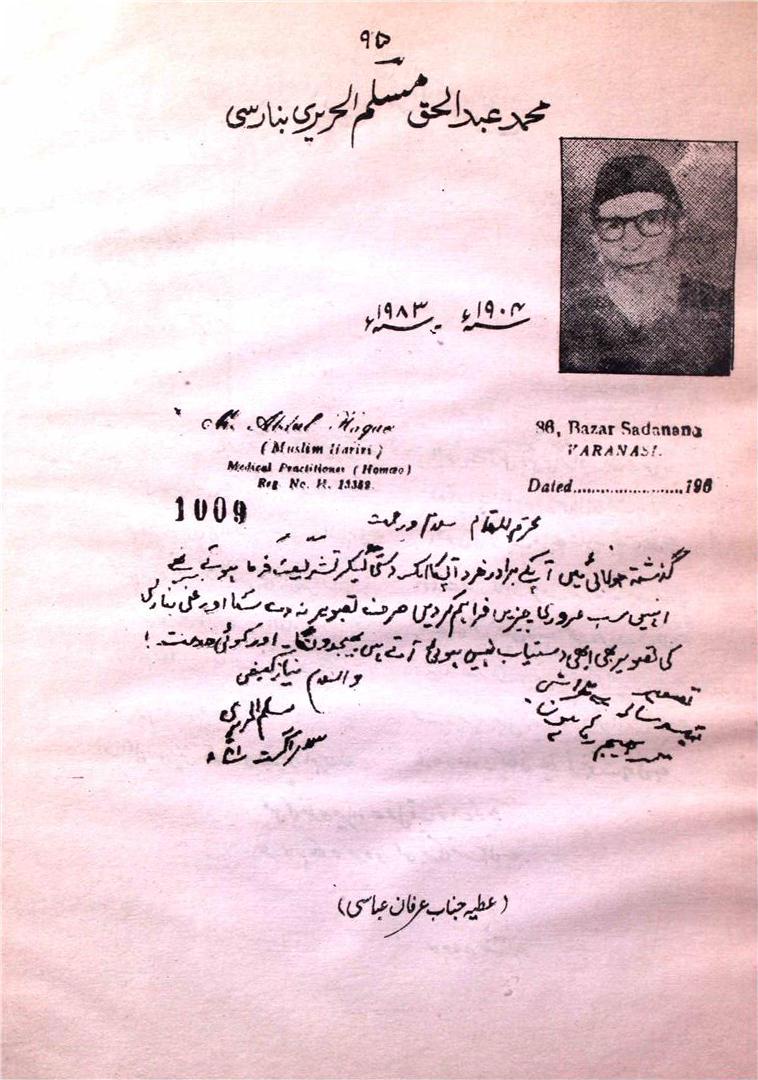 ۹۵
محمد عبدالحق مسلم الحریری بنارسی
۱۹۰۴ء - ۱۹۸۳ء
M. Abdul Haque
(Muslim Hariri)
Medical Practitioner (Homœo)
Reg. No. H. 13389.
86, Bazar Sadanand
VARANASI.
Dated......................196
1009
محترم المقام سلام و رحمت
گذشتہ جولائی میں آپکے برادر خرد آپکا دستی لیکر تشریف فرما ہوئے تھے
انہیں سب ضروری چیزیں فراہم کردیں صرف تصویر نہ دے سکا اور غنی بنارسی
کی تصویر بھی ابھی دستیاب نہیں ہوئی آتے ہی بھیجدونگا۔ اور کوئی خدمت!
والسلام نیاز کیفی
مسلم الحریری
اگست
تصویر
(عطیہ جناب عرفان عباسی)